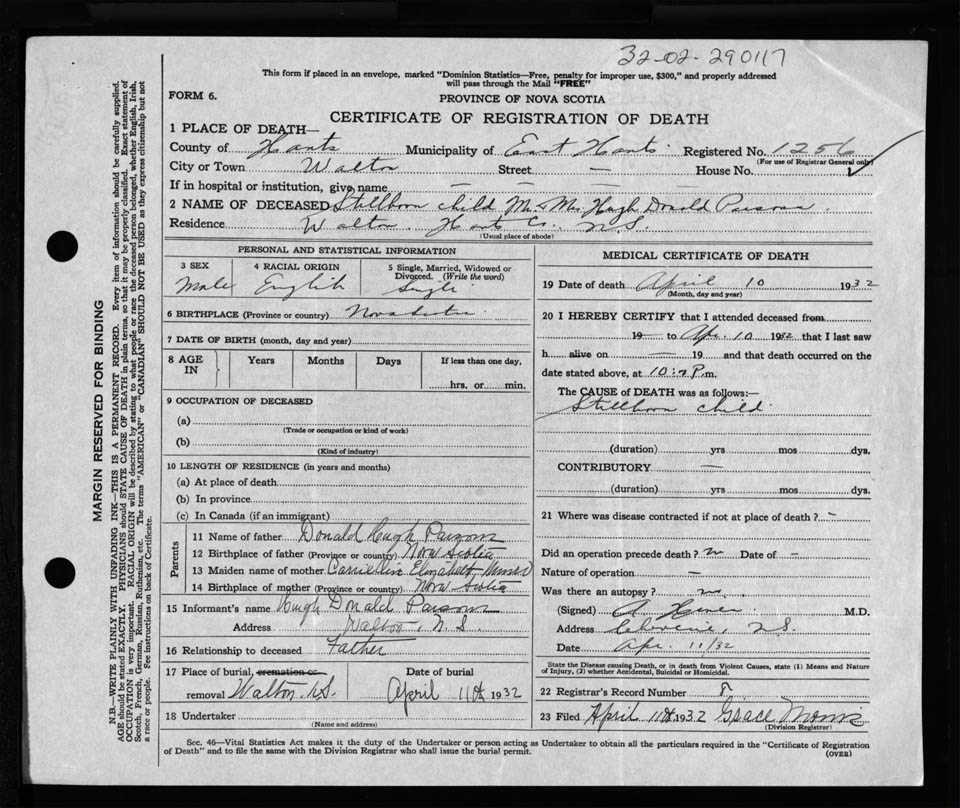 32-02-290117
This form if placed in an envelope, marked "Dominion Statistics—Free, penalty for improper use, $300," and properly addressed
will pass through the Mail "FREE"
FORM 6.
PROVINCE OF NOVA SCOTIA
CERTIFICATE OF REGISTRATION OF DEATH
1 PLACE OF DEATH—
County of Hants Municipality of East Hants Registered No. 1256
(For use of Registrar General only)
City or Town Walton Street — House No.
If in hospital or institution, give name — — — —
2 NAME OF DECEASED Stillborn child Mr & Mrs Hugh Donald Parsons
Residence Walton Hants Co. N.S.
(Usual place of abode)
PERSONAL AND STATISTICAL INFORMATION
3 SEX 4 RACIAL ORIGIN 5 Single, Married, Widowed or
Divorced. (Write the word)
Male English Single
6 BIRTHPLACE (Province or country) Nova Scotia
7 DATE OF BIRTH (month, day and year)
8 AGE IN Years Months Days If less than one day,
hrs. or min.
9 OCCUPATION OF DECEASED
(a)
(Trade or occupation or kind of work)
(b)
(Kind of industry)
10 LENGTH OF RESIDENCE (in years and months)
(a) At place of death
(b) In province
(c) In Canada (if an immigrant)
Parents
11 Name of father Donald Hugh Parsons
12 Birthplace of father (Province or country) Nova Scotia
13 Maiden name of mother Elizabeth
14 Birthplace of mother (Province or country) Nova Scotia
15 Informant's name Hugh Donald Parsons
Address Walton N.S.
16 Relationship to deceased Father
17 Place of burial, cremation or Date of burial
removal Walton N.S. April 11th 1932
18 Undertaker
(Name and address)
MEDICAL CERTIFICATE OF DEATH
19 Date of death April 10 1932
(Month, day and year)
20 I HEREBY CERTIFY that I attended deceased from
19— to Apr. 10 1932 that I last saw
h alive on — 19 and that death occurred on
date stated above, at 10 P.m.
The CAUSE OF DEATH was as follows:—
Stillborn child
(duration) yrs mos dys.
CONTRIBUTORY —
(duration) yrs mos dys.
21 Where was disease contracted if not at place of death? —
Did an operation precede death? no Date of —
Nature of operation —
Was there an autopsy? no
(Signed) A. M.D.
Address N.S.
Date Apr. 11/32
State the Disease causing Death, or in death from Violent Causes, state (1) Means and Nature
of Injury, (2) whether Accidental, Suicidal or Homicidal.
22 Registrar's Record Number
23 Filed April 11th 1932 Grace
(Division Registrar)
Sec. 46—Vital Statistics Act makes it the duty of the Undertaker or person acting as Undertaker to obtain all the particulars required in the "Certificate of Registration
of Death" and to file the same with the Division Registrar who shall issue the burial permit.
(OVER)
MARGIN RESERVED FOR BINDING
N.B.—WRITE PLAINLY WITH UNFADING INK—THIS IS A PERMANENT RECORD. Every item of information should be carefully supplied.
AGE should be stated EXACTLY. PHYSICIANS should STATE CAUSE OF DEATH in plain terms, so that it may be properly classified. Exact statement of
OCCUPATION is very important. RACIAL ORIGIN will be described by stating to what people or race the deceased person belonged, whether English, Irish,
Scotch, French, German, Russian, Ruthenian, etc. The terms "AMERICAN" or "CANADIAN" SHOULD NOT BE USED as they express citizenship but not
a race or people. See instructions on back of Certificate.